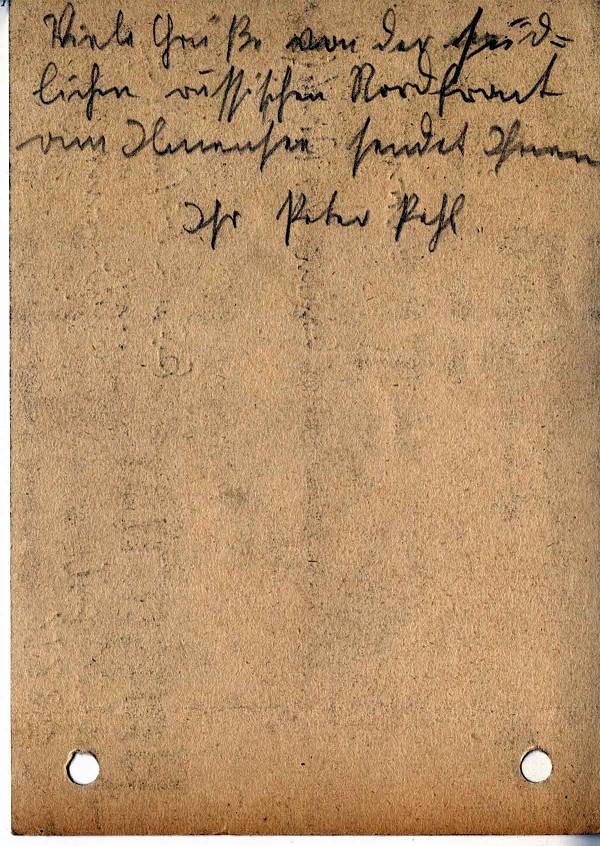 Viele Grüße von der süd=
lichen russischen Nordfront
am Ilmensee sendet Ihnen
Ihr Peter Pehl